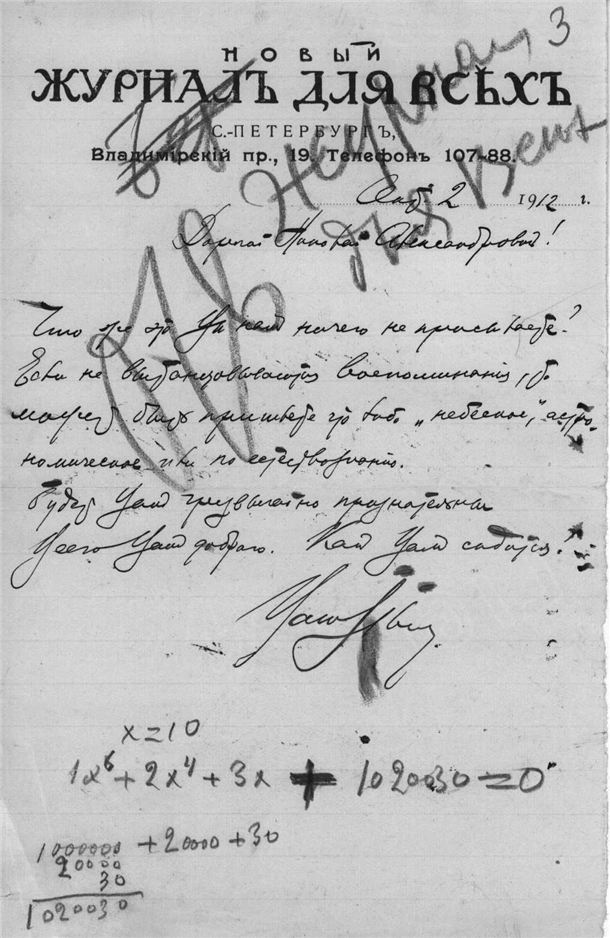 3
НОВЫЙ
ЖУРНАЛЪ ДЛЯ ВСѢХЪ
С.-ПЕТЕРБУРГЪ,
Владимірскій пр., 19. Телефонъ 107-88.
Журнал
для Всех
2 1912 г.
Дорогой Николай Александрович!
Что же это Вы нам ничего не присылаете?
Если не вытанцовываются воспоминания, то
может быть пришлете что либо „небесное“, астро-
номическое или по естествознанию.
Будем Вам чрезвычайно признательны
Всего Вам доброго. Как Вам сидится?
Ваш
x=10
1x⁶+2x⁴+3x + 1020030=0
1000000 +20000+30
20000
30
1020030